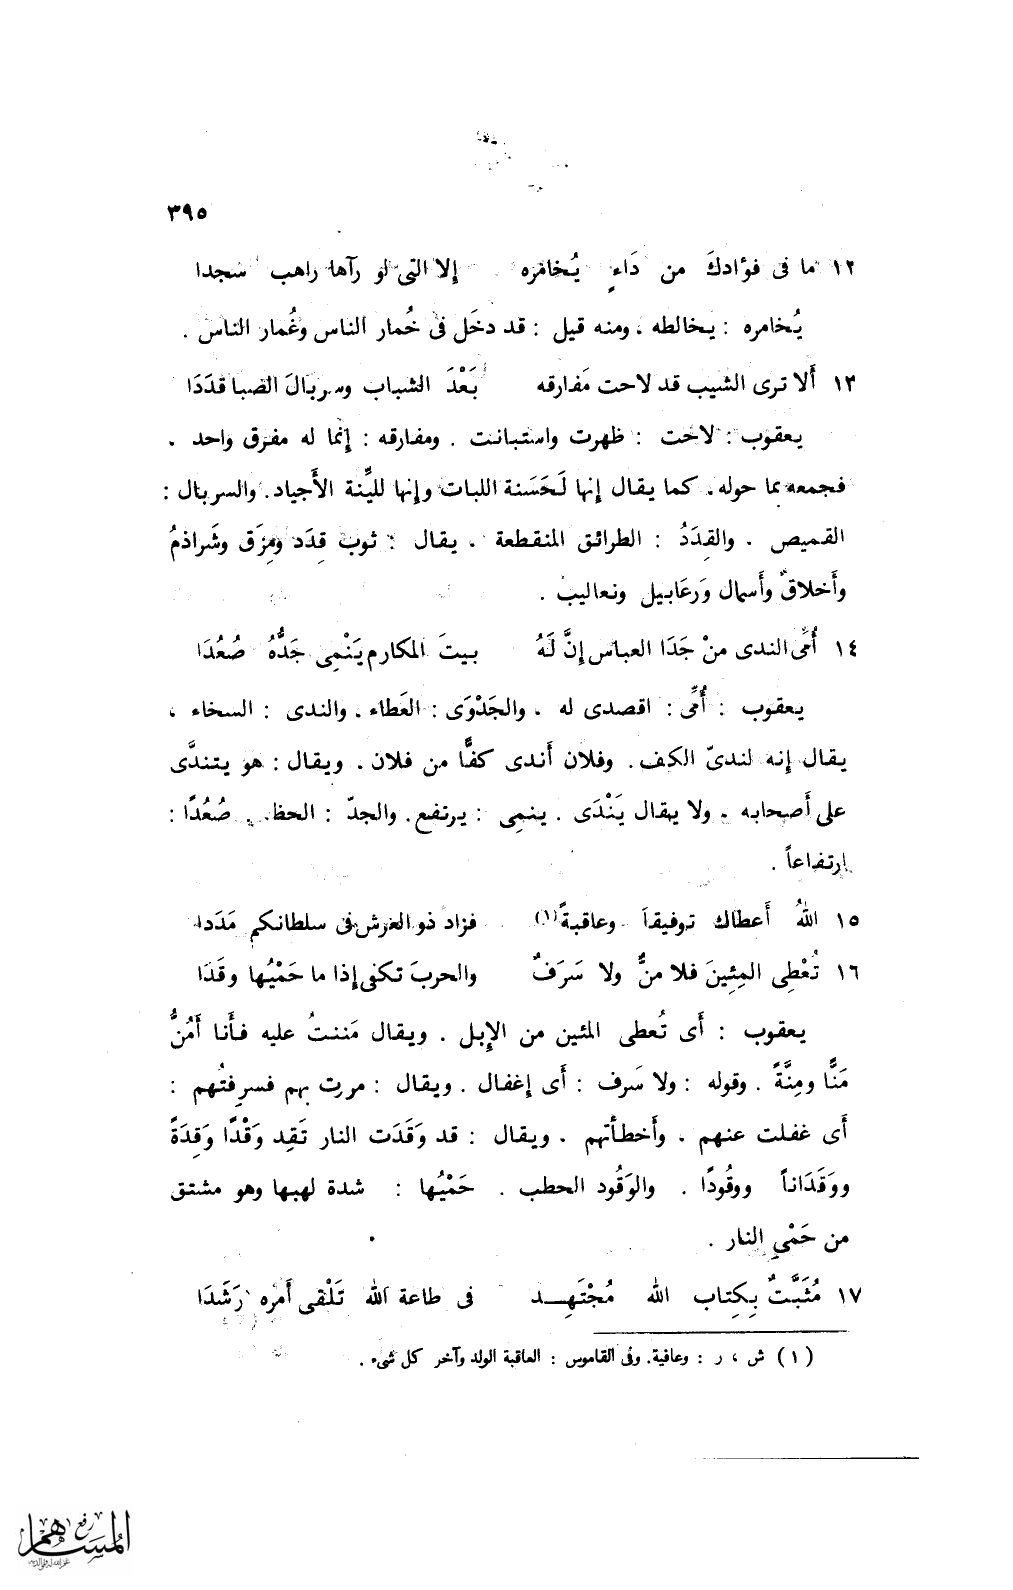 ٣٩٥
١٢ ما فى فؤادكَ من دَاءٍ يُخامره إلا التى لو رآها راهب سجدا
يُخامره : يخالطه ، ومنه قيل : قد دخَل فى خُمار الناس وغُمار الناس .
١٣ أَلا ترى الشيب قد لاحت مَفارقه بَعْدَ الشباب وسربالَ الصبا قدَدَا
يعقوب : لاحت : ظهرت واستبانت . ومفارقه : إِنما له مفرق واحد .
فجمعه بما حوله ، كما يقال إنها لَحَسَنة اللبات وإنها لليِّنة الأَجياد . والسربال :
القميص . والقِدَدُ : الطرائق المنقطعة . يقال : ثوب قِدَد ومِزَق وشَراذمُ
وأَخلاقٌ وأَسمال وَرعَابيل ونعاليب .
١٤ أُمِّى الندى منْ جَدَا العباس إِنَّ لَهُ بيتَ المكارم يَنْمِى جَدُّهُ صُعُدَا
يعقوب : أُمِّى : اقصدى له . والجَدْوَى : العَطاء . والندى : السخاء ،
يقال إنه لندىّ الكف . وفلان أَندى كفًّا من فلان . ويقال : هو يتندَّى
على أَصحابه . ولا يقال يَنْدَى . ينمِى : يرتفع . والجدّ : الحظ . صُعُدًا :
ارتفاعاً .
١٥ اللهُ أَعطاك توفيقاً وعاقبةً(١) فزاد ذو العرش فى سلطانكم مَدَدا
١٦ تُعْطِى المِئِينَ فلا منٌّ ولا سَرَفٌ والحربَ تكفى إذا ما حَمْيُها وقَدَا
يعقوب : أَى تُعطى المئين من الإِبل . ويقال مَننتُ عليه فأَنا أَمُنُّ
مَنًّا ومِنَّةً . وقوله : ولا سَرف : أَى إغفال . ويقال : مررت بهم فسرِفتُهم :
أَى غفلت عنهم ، وأَخطأتهم . ويقال : قد وَقَدَت النار تَقِد وَقْدًا وَقِدَةً
ووَقَدَاناً ووقُودًا . والوَقُود الحطب . حَمْيُها : شدة لهبها وهو مشتق
من حَمْىِ النار .
١٧ مُثَبَّتٌ بِكِتاب الله مُجْتَهِد فى طاعة الله تَلْقى أَمْره رَشَدَا
(١) ش ، ر : وعافية . وفى القاموس : العاقبة الولد وآخر كل شىء .
المساهم